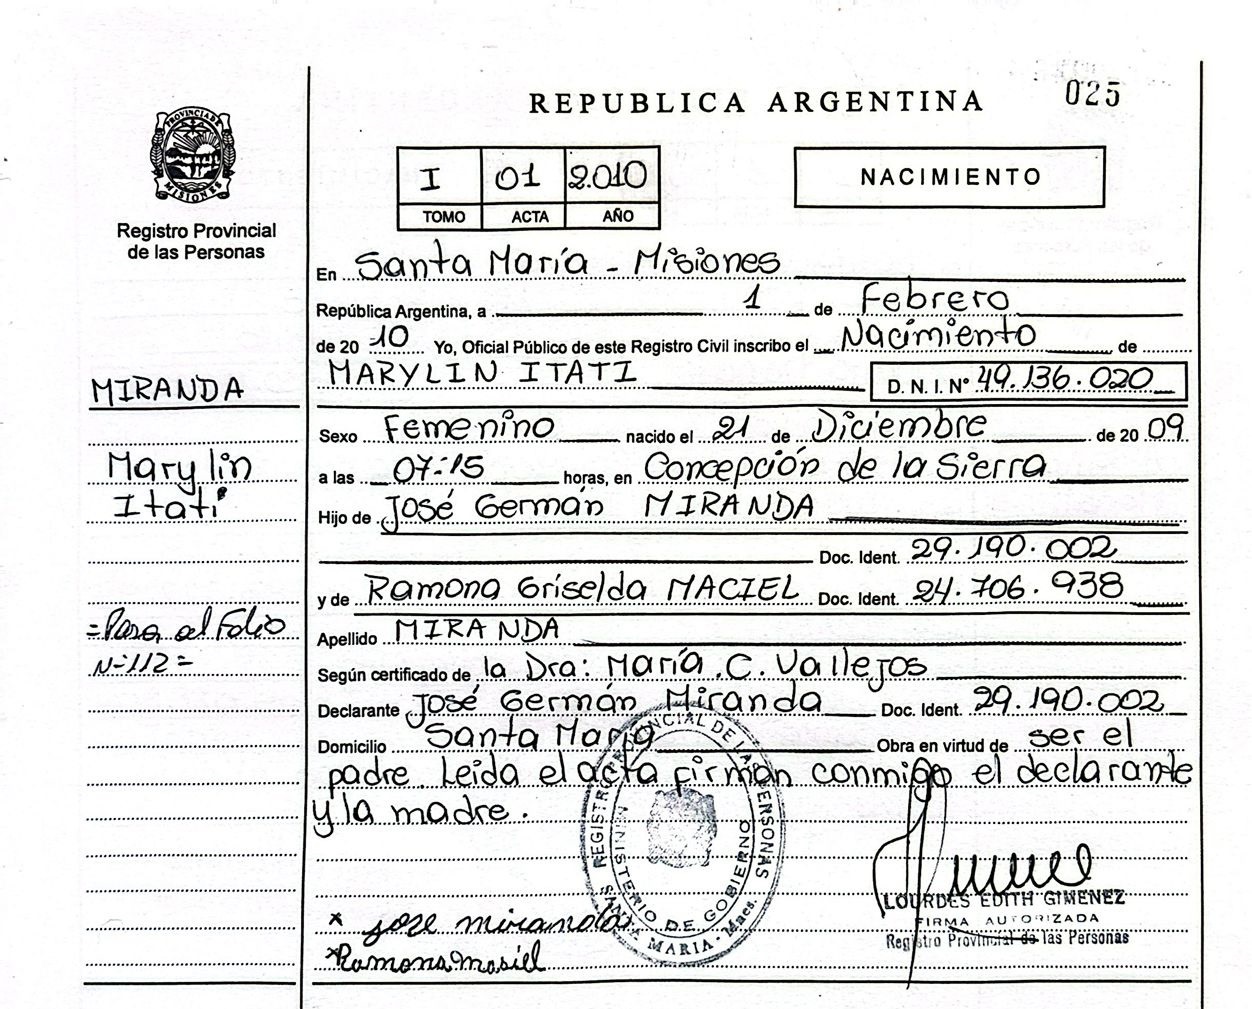 REPUBLICA ARGENTINA
025
PROVINCIA DE
MISIONES
Registro Provincial
de las Personas
I 01 2.010
TOMO ACTA AÑO
NACIMIENTO
En Santa María - Misiones
República Argentina, a 1 de Febrero
de 20 10 Yo, Oficial Público de este Registro Civil inscribo el Nacimiento de
MARYLIN ITATI D. N. I. Nº 49.136.020
MIRANDA
Marylin
Itatí
Sexo Femenino nacido el 21 de Diciembre de 20 09
a las 07:15 horas, en Concepción de la Sierra
Hijo de José Germán MIRANDA
Doc. Ident. 29.190.002
y de Ramona Griselda MACIEL Doc. Ident. 24.706.938
=Pasa al Folio
Nº 112=
Apellido MIRANDA
Según certificado de la Dra: María .C. Vallejos
Declarante José Germán Miranda Doc. Ident. 29.190.002
Domicilio Santa María Obra en virtud de ser el
padre. Leida el acta firman conmigo el declarante
y la madre.
REGISTRO PROVINCIAL DE LAS PERSONAS
MINISTERIO DE GOBIERNO
SANTA MARIA - Mnes.
x jose miranda
x Ramona masiel
LOURDES EDITH GIMENEZ
FIRMA AUTORIZADA
Registro Provincial de las Personas